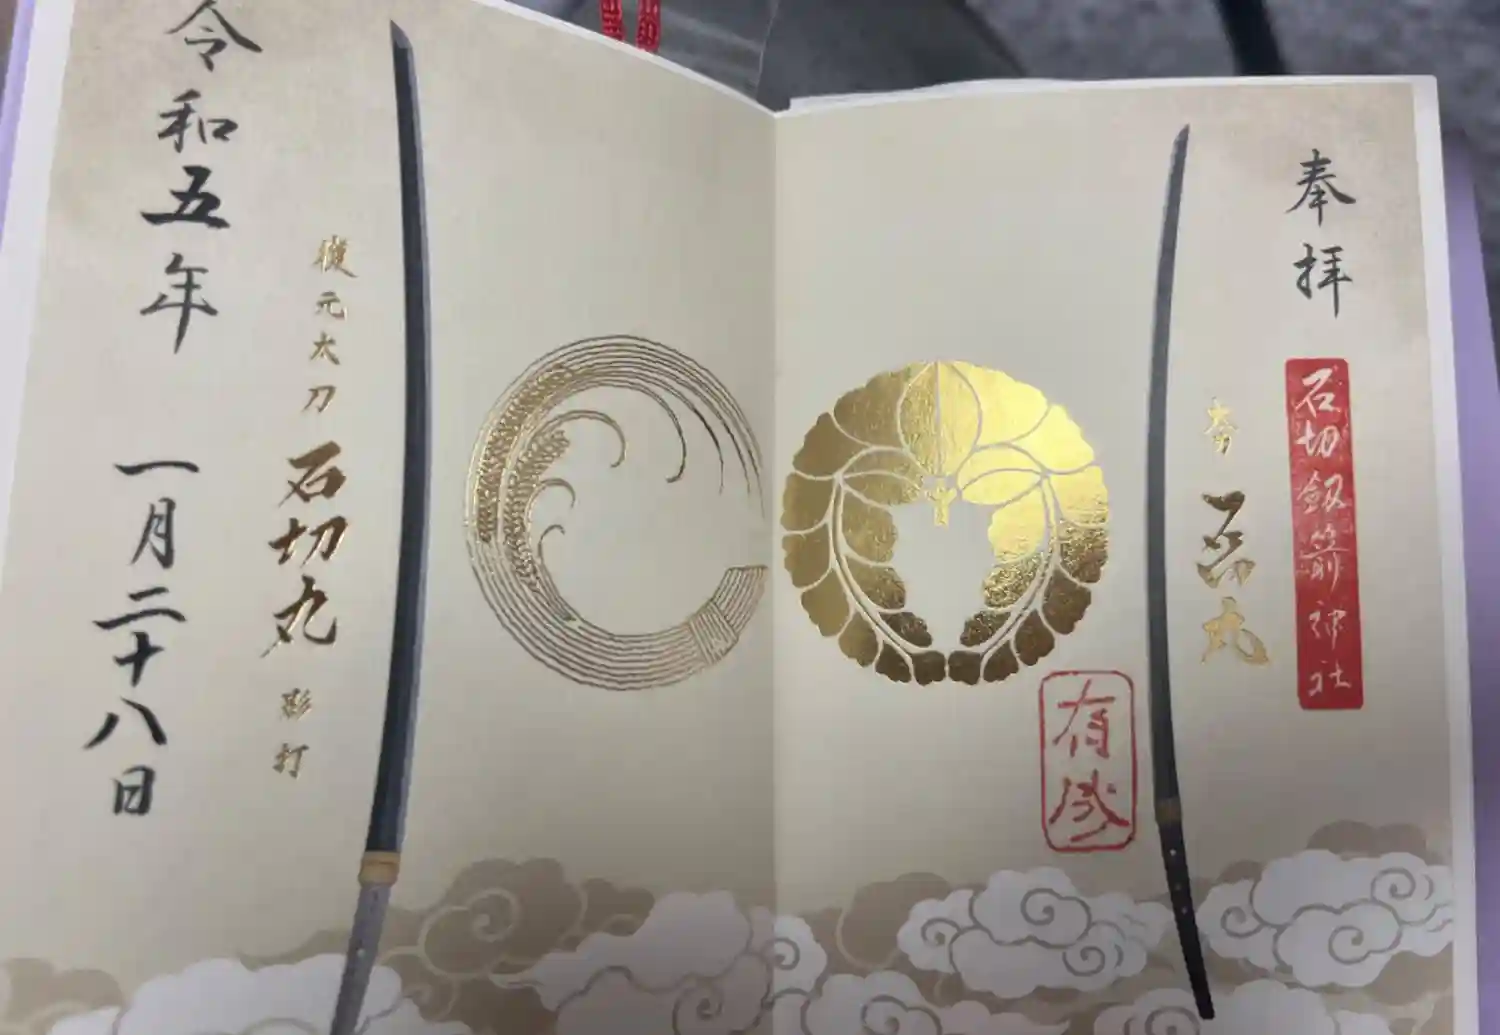 奉拝
石切劔箭神社
有成
復元太刀 石切丸 影打
令和五年 一月二十八日